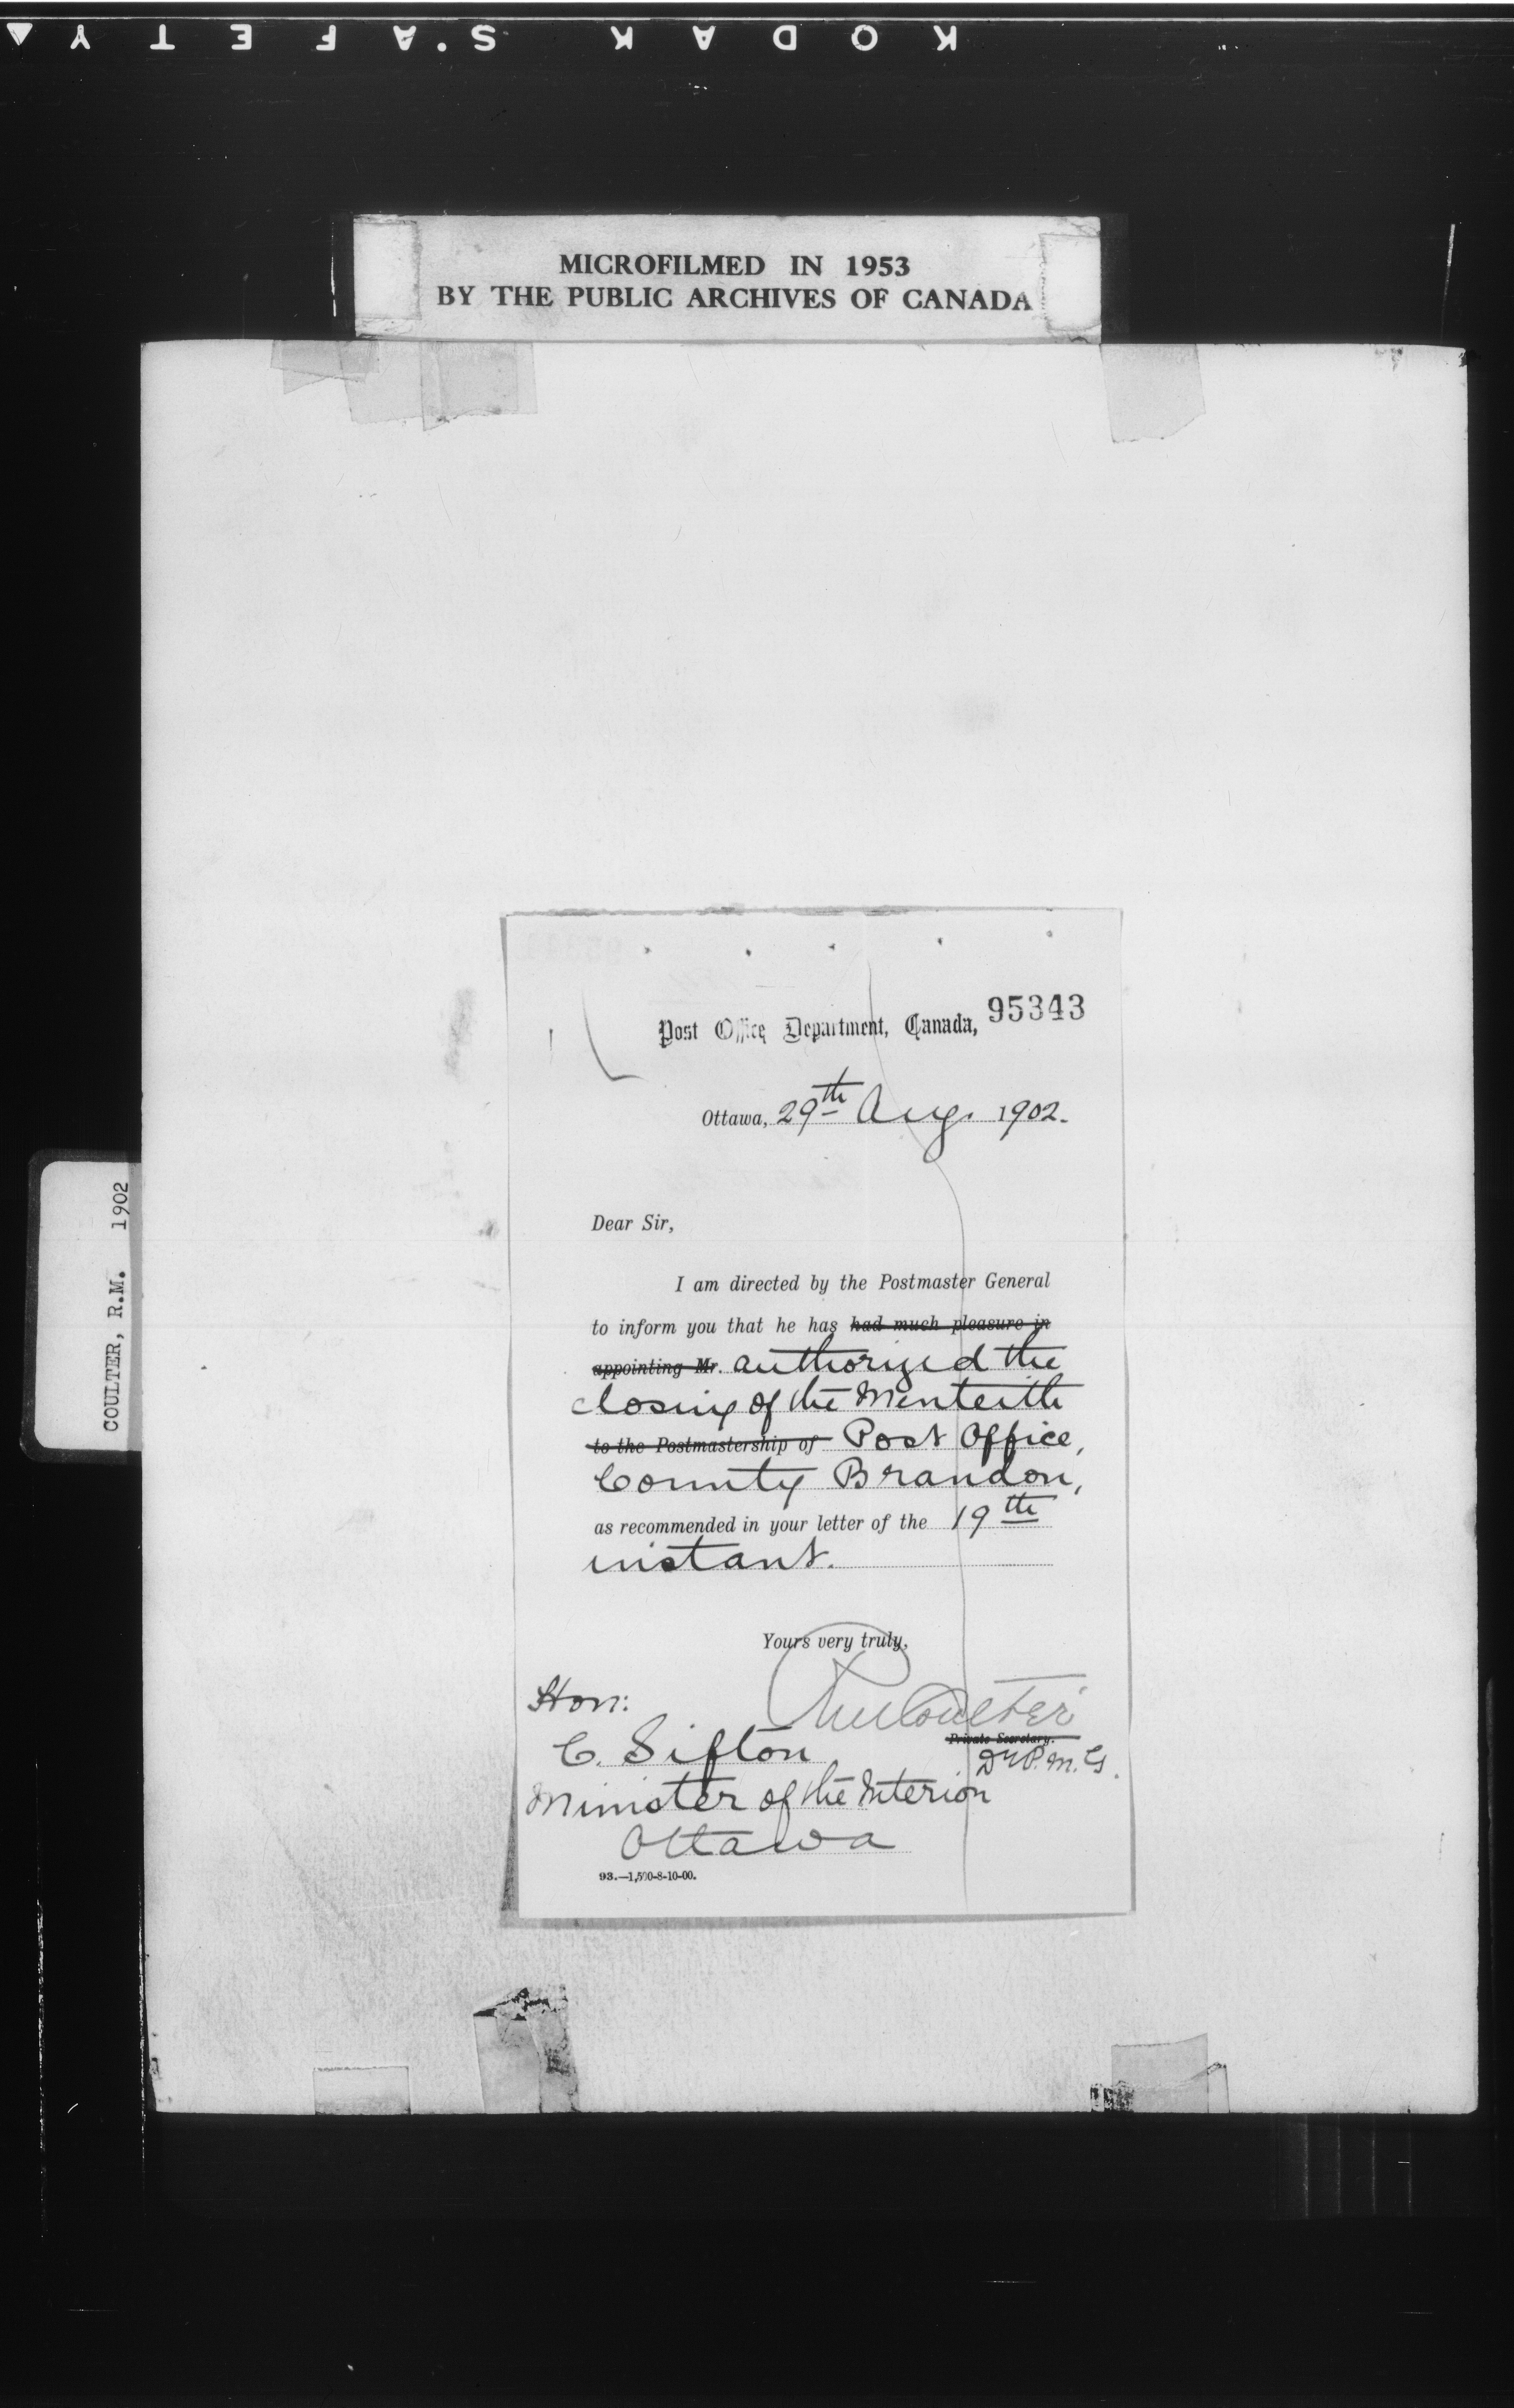 KODAK S'AFETY
MICROFILMED IN 1953
BY THE PUBLIC ARCHIVES OF CANADA
COULTER, R.M. 1902
95343
Post Office Department, Canada,
Ottawa, 29th Aug. 1902.
Dear Sir,
I am directed by the Postmaster General
to inform you that he has had much pleasure in
appointing Mr. authorized the
closing of the Menteith
to the Postmastership of Post Office,
County Brandon,
as recommended in your letter of the 19th
instant.
Yours very truly,
RMCoulter
Private Secretary.
Dy P.M.G.
Hon:
C. Sifton
Minister of the Interior
Ottawa
93.—1,500-8-10-00.